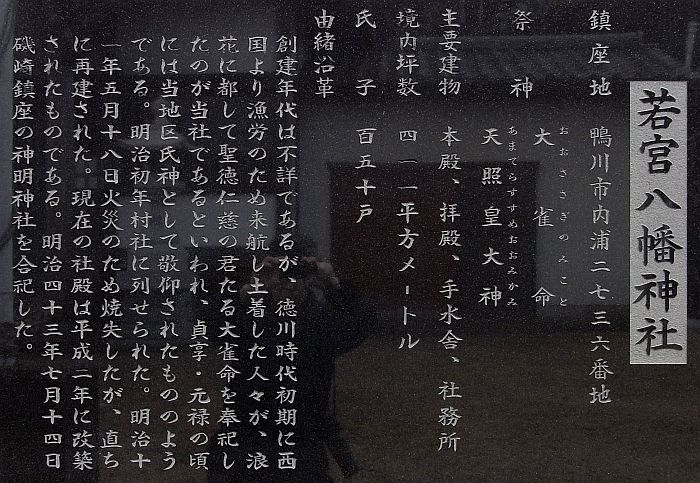 若宮八幡神社
鎮座地 鴨川市内浦二七三六番地
祭神 大雀命
おおささぎのみこと
天照皇大神
あまてらすすめおおみかみ
主要建物 本殿、拝殿、手水舎、社務所
境内坪数 四一一平方メートル
氏子 百五十戸
由緒沿革
創建年代は不詳であるが、徳川時代初期に西
国より漁労のため来航し土着した人々が、浪
花に都して聖徳仁慈の君たる大雀命を奉祀し
たのが当社であるといわれ、貞享・元禄の頃
には当地区氏神として敬仰されたもののよう
である。明治初年村社に列せられた。明治十
一年五月十八日火災のため焼失したが、直ち
に再建された。現在の社殿は平成二年に改築
されたものである。明治四十三年七月十四日
磯崎鎮座の神明神社を合祀した。